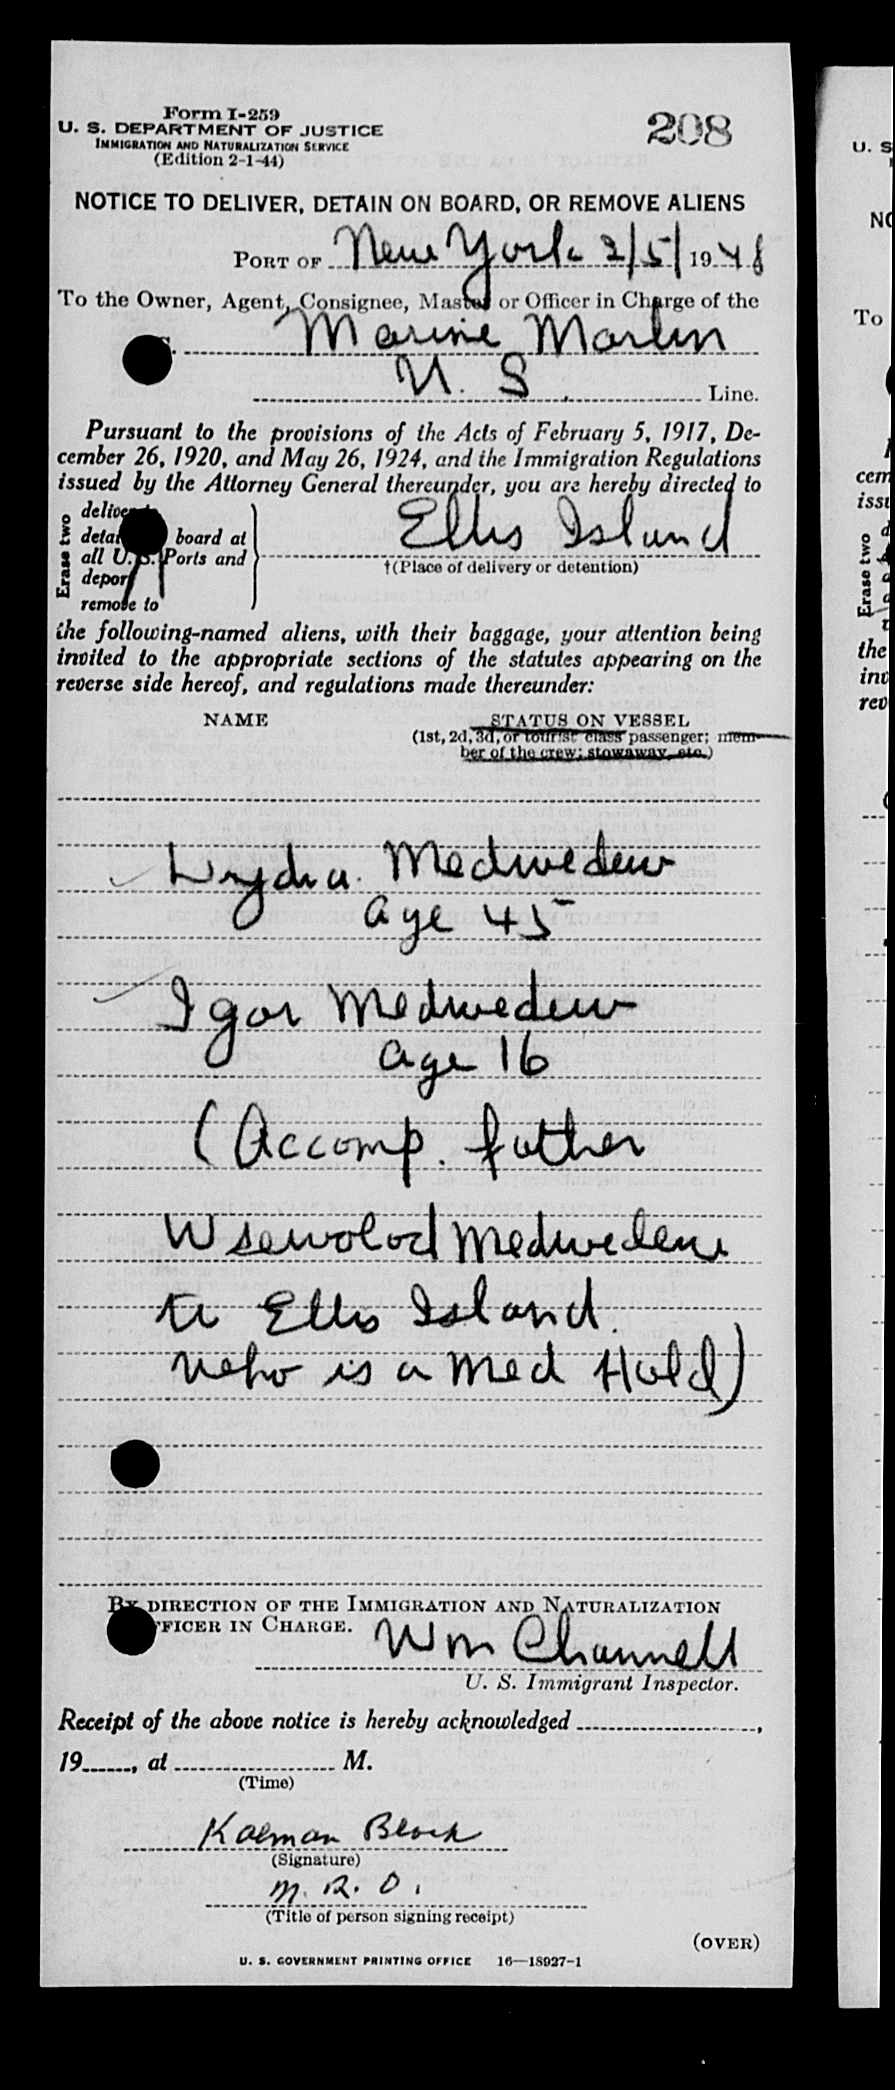 Form I-259
U. S. DEPARTMENT OF JUSTICE
IMMIGRATION AND NATURALIZATION SERVICE
(Edition 2-1-44)
208
NOTICE TO DELIVER, DETAIN ON BOARD, OR REMOVE ALIENS
PORT OF New York 2/5/1948
To the Owner, Agent, Consignee, Master or Officer in Charge of the
Marine Marlin
U. S. Line.
Pursuant to the provisions of the Acts of February 5, 1917, De-
cember 26, 1920, and May 26, 1924, and the Immigration Regulations
issued by the Attorney General thereunder, you are hereby directed to
Erase two
deliver
board at
all U. S. Ports and
deport
remove to
Ellis Island
†(Place of delivery or detention)
the following-named aliens, with their baggage, your attention being
invited to the appropriate sections of the statutes appearing on the
reverse side hereof, and regulations made thereunder:
NAME
STATUS ON VESSEL
(1st, 2d, 3d, or tourist class passenger; mem-
ber of the crew; stowaway, etc.)
Lydia Medwedew
age 45
Igor Medwedew
age 16
(Accomp. father
Wsewolod Medwedew
to Ellis Island.
who is a Med Hold)
BY DIRECTION OF THE IMMIGRATION AND NATURALIZATION
FFICER IN CHARGE.
Wm Channell
U. S. Immigrant Inspector.
Receipt of the above notice is hereby acknowledged ,
19 , at M.
(Time)
Kalman Block
(Signature)
M. R. O.
(Title of person signing receipt)
(OVER)
U. S. GOVERNMENT PRINTING OFFICE 16—18927-1
U. S
NO
To
cem
issu
Erase two
the
inv
rev